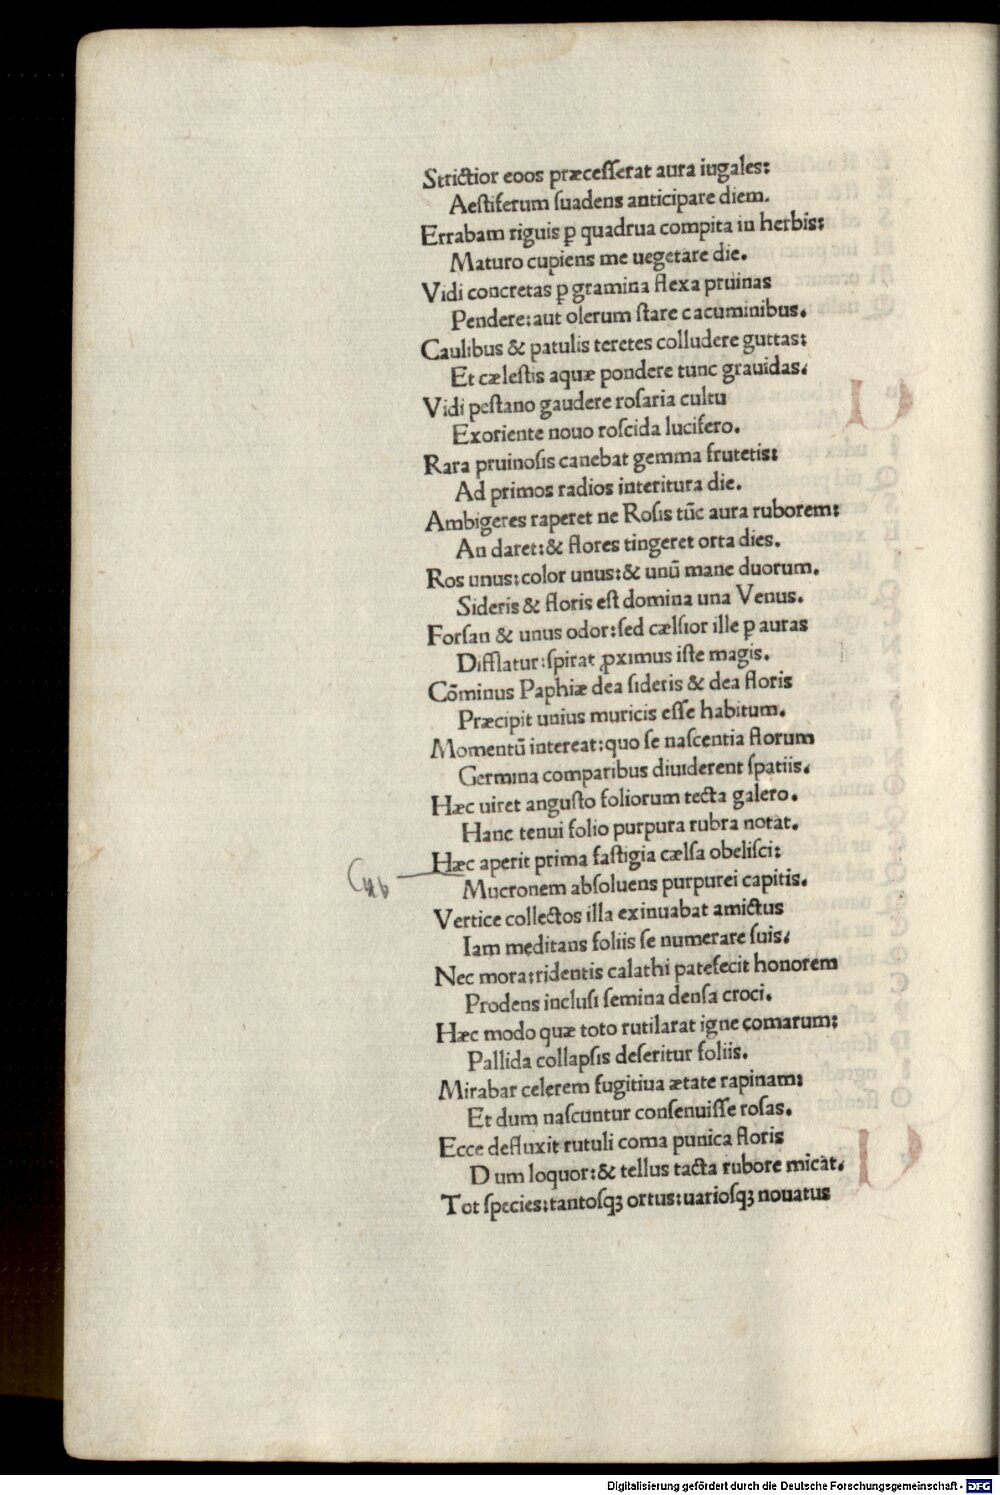 Strictior eoos præcesserat aura iugales:
Aestiferum suadens anticipare diem.
Errabam riguis ꝑ quadrua compita in herbis:
Maturo cupiens me uegetare die.
Vidi concretas ꝑ gramina flexa pruinas
Pendere: aut olerum stare cacuminibus.
Caulibus & patulis teretes colludere guttas:
Et cælestis aquæ pondere tunc grauidas.
Vidi pestano gaudere rosaria cultu
Exoriente nouo roscida lucifero.
Rara pruinosis canebat gemma frutetis:
Ad primos radios interitura die.
Ambigeres raperet ne Rosis tūc aura ruborem:
An daret: & flores tingeret orta dies.
Ros unus: color unus: & unū mane duorum.
Sideris & floris est domina una Venus.
Forsan & unus odor: sed cælsior ille ꝑ auras
Difflatur: spirat ꝓximus iste magis.
Cōminus Paphiæ dea sideris & dea floris
Præcipit unius muricis esse habitum.
Momentū intereat: quo se nascentia florum
Germina comparibus diuiderent spatiis.
Hæc uiret angusto foliorum tecta galero.
Hanc tenui folio purpura rubra notat.
Hæc aperit prima fastigia cælsa obelisci:
Mucronem absoluens purpurei capitis.
Vertice collectos illa exinuabat amictus
Iam meditans foliis se numerare suis.
Nec mora: ridentis calathi patefecit honorem
Prodens inclusi semina densa croci.
Hæc modo quæ toto rutilarat igne comarum:
Pallida collapsis deseritur foliis.
Mirabar celerem fugitiua ætate rapinam:
Et dum nascuntur consenuisse rosas.
Ecce defluxit rutuli coma punica floris
Dum loquor: & tellus tacta rubore micat.
Tot species: tantosqꝫ ortus: uariosqꝫ nouatus
Digitalisierung gefördert durch die Deutsche Forschungsgemeinschaft - DFG